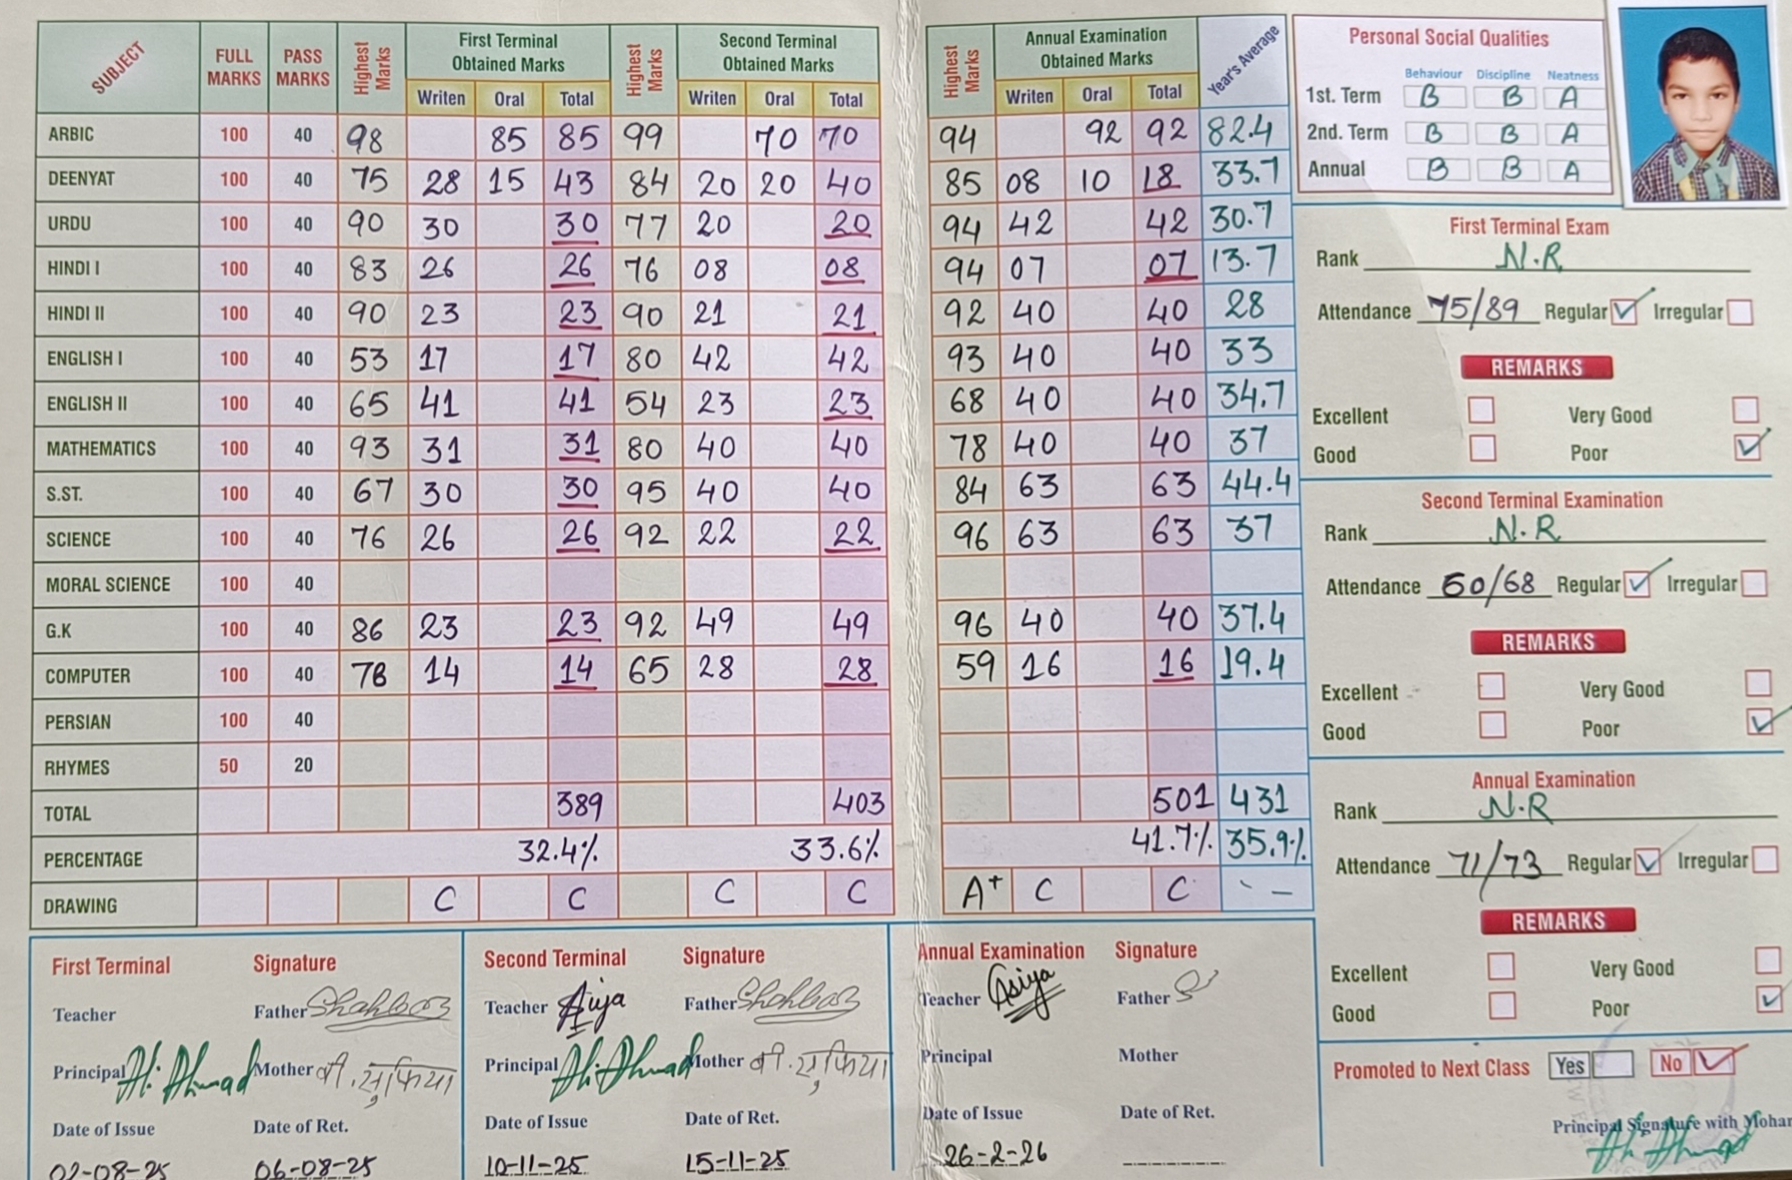 SUBJECT FULL MARKS PASS MARKS Highest Marks First Terminal Obtained Marks Highest Marks Second Terminal Obtained Marks Highest Marks Annual Examination Obtained Marks Year's Average
Writen Oral Total Writen Oral Total Writen Oral Total
ARBIC 100 40 98 85 85 99 70 70 94 92 92 82.4
DEENYAT 100 40 75 28 15 43 84 20 20 40 85 08 10 18 33.7
URDU 100 40 90 30 30 77 20 20 94 42 42 30.7
HINDI I 100 40 83 26 26 76 08 08 94 07 07 13.7
HINDI II 100 40 90 23 23 90 21 21 92 40 40 28
ENGLISH I 100 40 53 17 17 80 42 42 93 40 40 33
ENGLISH II 100 40 65 41 41 54 23 23 68 40 40 34.7
MATHEMATICS 100 40 93 31 31 80 40 40 78 40 40 37
S.ST. 100 40 67 30 30 95 40 40 84 63 63 44.4
SCIENCE 100 40 76 26 26 92 22 22 96 63 63 37
MORAL SCIENCE 100 40
G.K 100 40 86 23 23 92 49 49 96 40 40 37.4
COMPUTER 100 40 78 14 14 65 28 28 59 16 16 19.4
PERSIAN 100 40
RHYMES 50 20
TOTAL 389 403 501 431
PERCENTAGE 32.4% 33.6% 41.7% 35.9%
DRAWING C C C C A+ C C - -
Personal Social Qualities
Behaviour Discipline Neatness
1st. Term B B A
2nd. Term B B A
Annual B B A
First Terminal Exam
Rank N.R
Attendance 75/89 Regular Irregular
REMARKS
Excellent Very Good
Good Poor
Second Terminal Examination
Rank N.R
Attendance 60/68 Regular Irregular
REMARKS
Excellent Very Good
Good Poor
Annual Examination
Rank N.R
Attendance 71/73 Regular Irregular
REMARKS
Excellent Very Good
Good Poor
Promoted to Next Class Yes No
Principal Signature with Mohar
Ali Ahmad
First Terminal Signature
Teacher Father Shahbaz
Principal Ali Ahmad Mother बी. सुफिया
Date of Issue Date of Ret.
02-08-25 06-08-25
Second Terminal Signature
Teacher Father Shahbaz
Principal Ali Ahmad Mother बी. सुफिया
Date of Issue Date of Ret.
10-11-25 15-11-25
Annual Examination Signature
Teacher Asiya Father
Principal Mother
Date of Issue Date of Ret.
26-2-26